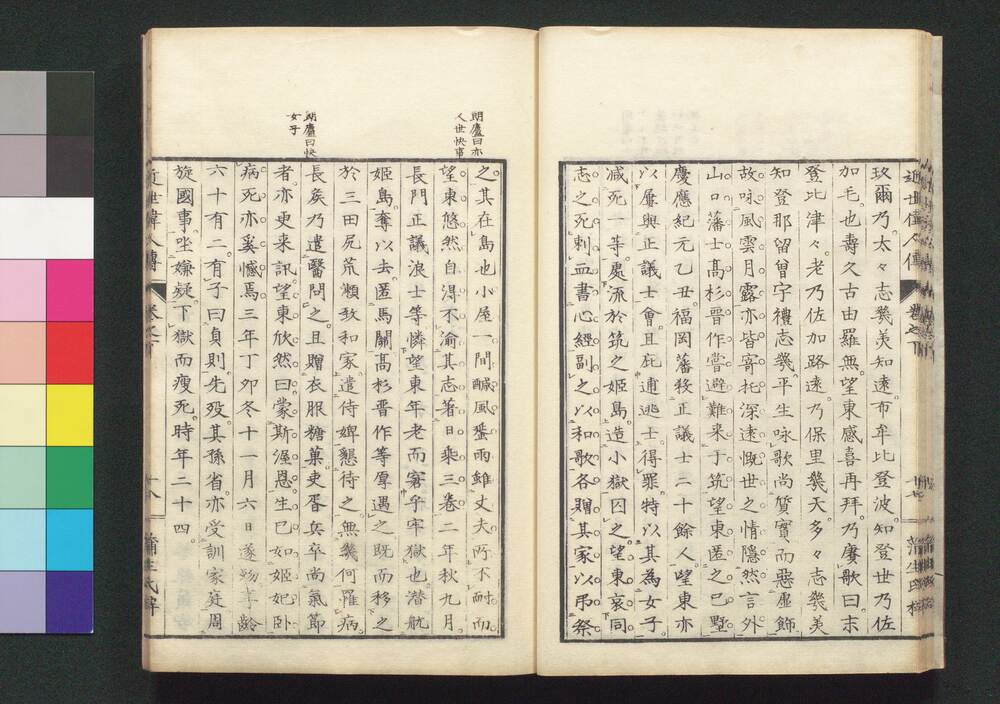 玖爾乃太々志幾美知遠布牟比登波知登世乃佐
加毛也壽久古由羅無望東感喜再拜乃賡歌曰末
登比津々老乃佐加路遠乃保里幾天多々志幾美
知登那留曾宇禮志幾平生咏歌尚質實而惡虛飾
故咏風雲月露亦皆寄托深遠慨世之情隱然言外
山口藩士高杉晉作嘗避難来于筑望東匿之已墅
慶應紀元乙丑福岡藩務正議士二十餘人望東亦
以屢與正議士會且庇逋逃士得罪特以其為女子
減死一等處流於筑之姬島造小獄囚之望東哀同
志之死刺血書心經副之以和歌各贈其家以弔祭
近世偉人傳
蒲生氏梓
朗廬曰亦
人世快事
之其在島也小屋一間醎風蜑雨雖丈夫所不耐而
望東悠然自得不渝其志著日乘三卷二年秋九月
長門正議浪士等憐望東年老而窘乎牢獄也潜航
姬島奪以去匿馬關高杉晋作等厚遇之既而移之
於三田尻荒瀬致和家遣侍婢懇待之無幾何罹病
朗廬曰快
女子
長矦乃遣醫問之且贈衣服糖菓吏胥兵卒尚氣節
者亦更来訊望東欣然曰蒙斯渥恩生已如姬妃卧
病死亦奚憾焉三年丁夘冬十一月六日遂歾年齡
六十有二有子曰貞則先歿其孫省亦受訓家庭周
旋國事坐嫌疑下獄而瘦死時年二十四
近世偉人傳
十八
蒲生氏梓